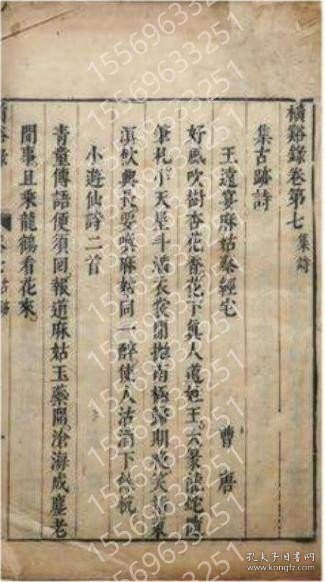 橫谿錄卷第七 集詩
集古跡詩
王遠宴麻姑蔡經宅 曹唐
好風吹樹杏花香花下真人道姓王大篆龍蛇
筆札小天星斗滿衣裳閒拋南極歸期晚笑
飲興長要喚麻姑同一醉使人沽酒下餘杭
小遊仙詩二首
青童傳語便須回報道麻姑玉藥開滄海成塵老
閒事且乘龍鶴看花來
15569633251
15569633251
15569633251
15569633251
孔夫子旧书网
www.kongfz.com